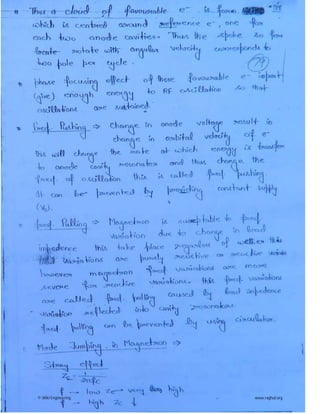 Thus a cloud of favourable e⁻ is form
which is centred around reference e⁻, one for
each two anode cavities. Thus the spoke so for
locate rotate with angular velocity corresponds to
two pole per cycle.
79
phase focusing effect of these favourable e⁻ impart
(give) enough energy to RF oscillation so that
oscillations are sustained.
Freq. Pushing ⇒ Change in anode voltage result in
change in orbital velocity of e⁻
this will change the rate at which energy is transfer
to anode cavity resonators and thus change the
freq. of oscillation this is called freq. pushing.
It can be prevented by providing constant supply
(V₀).
freq. Pulling ⇒ Magnetron is susceptable to freq.
variation due to change in load
impedence this take place regardless of wether this
variations are purely resistive or reactive
however magnetron freq. variations are more
severe for reactive variations. this freq. variations
are called freq. pulling caused by load impedence
variation reflected into cavity resonators.
freq pulling can be prevented by using circulator.
Mode Jumping in Magnetron ⇒
effect
Zc = 1/2πfc
f → low Zc → very high
f → high Zc ↓
© Wiki Engineering
www.raghul.org